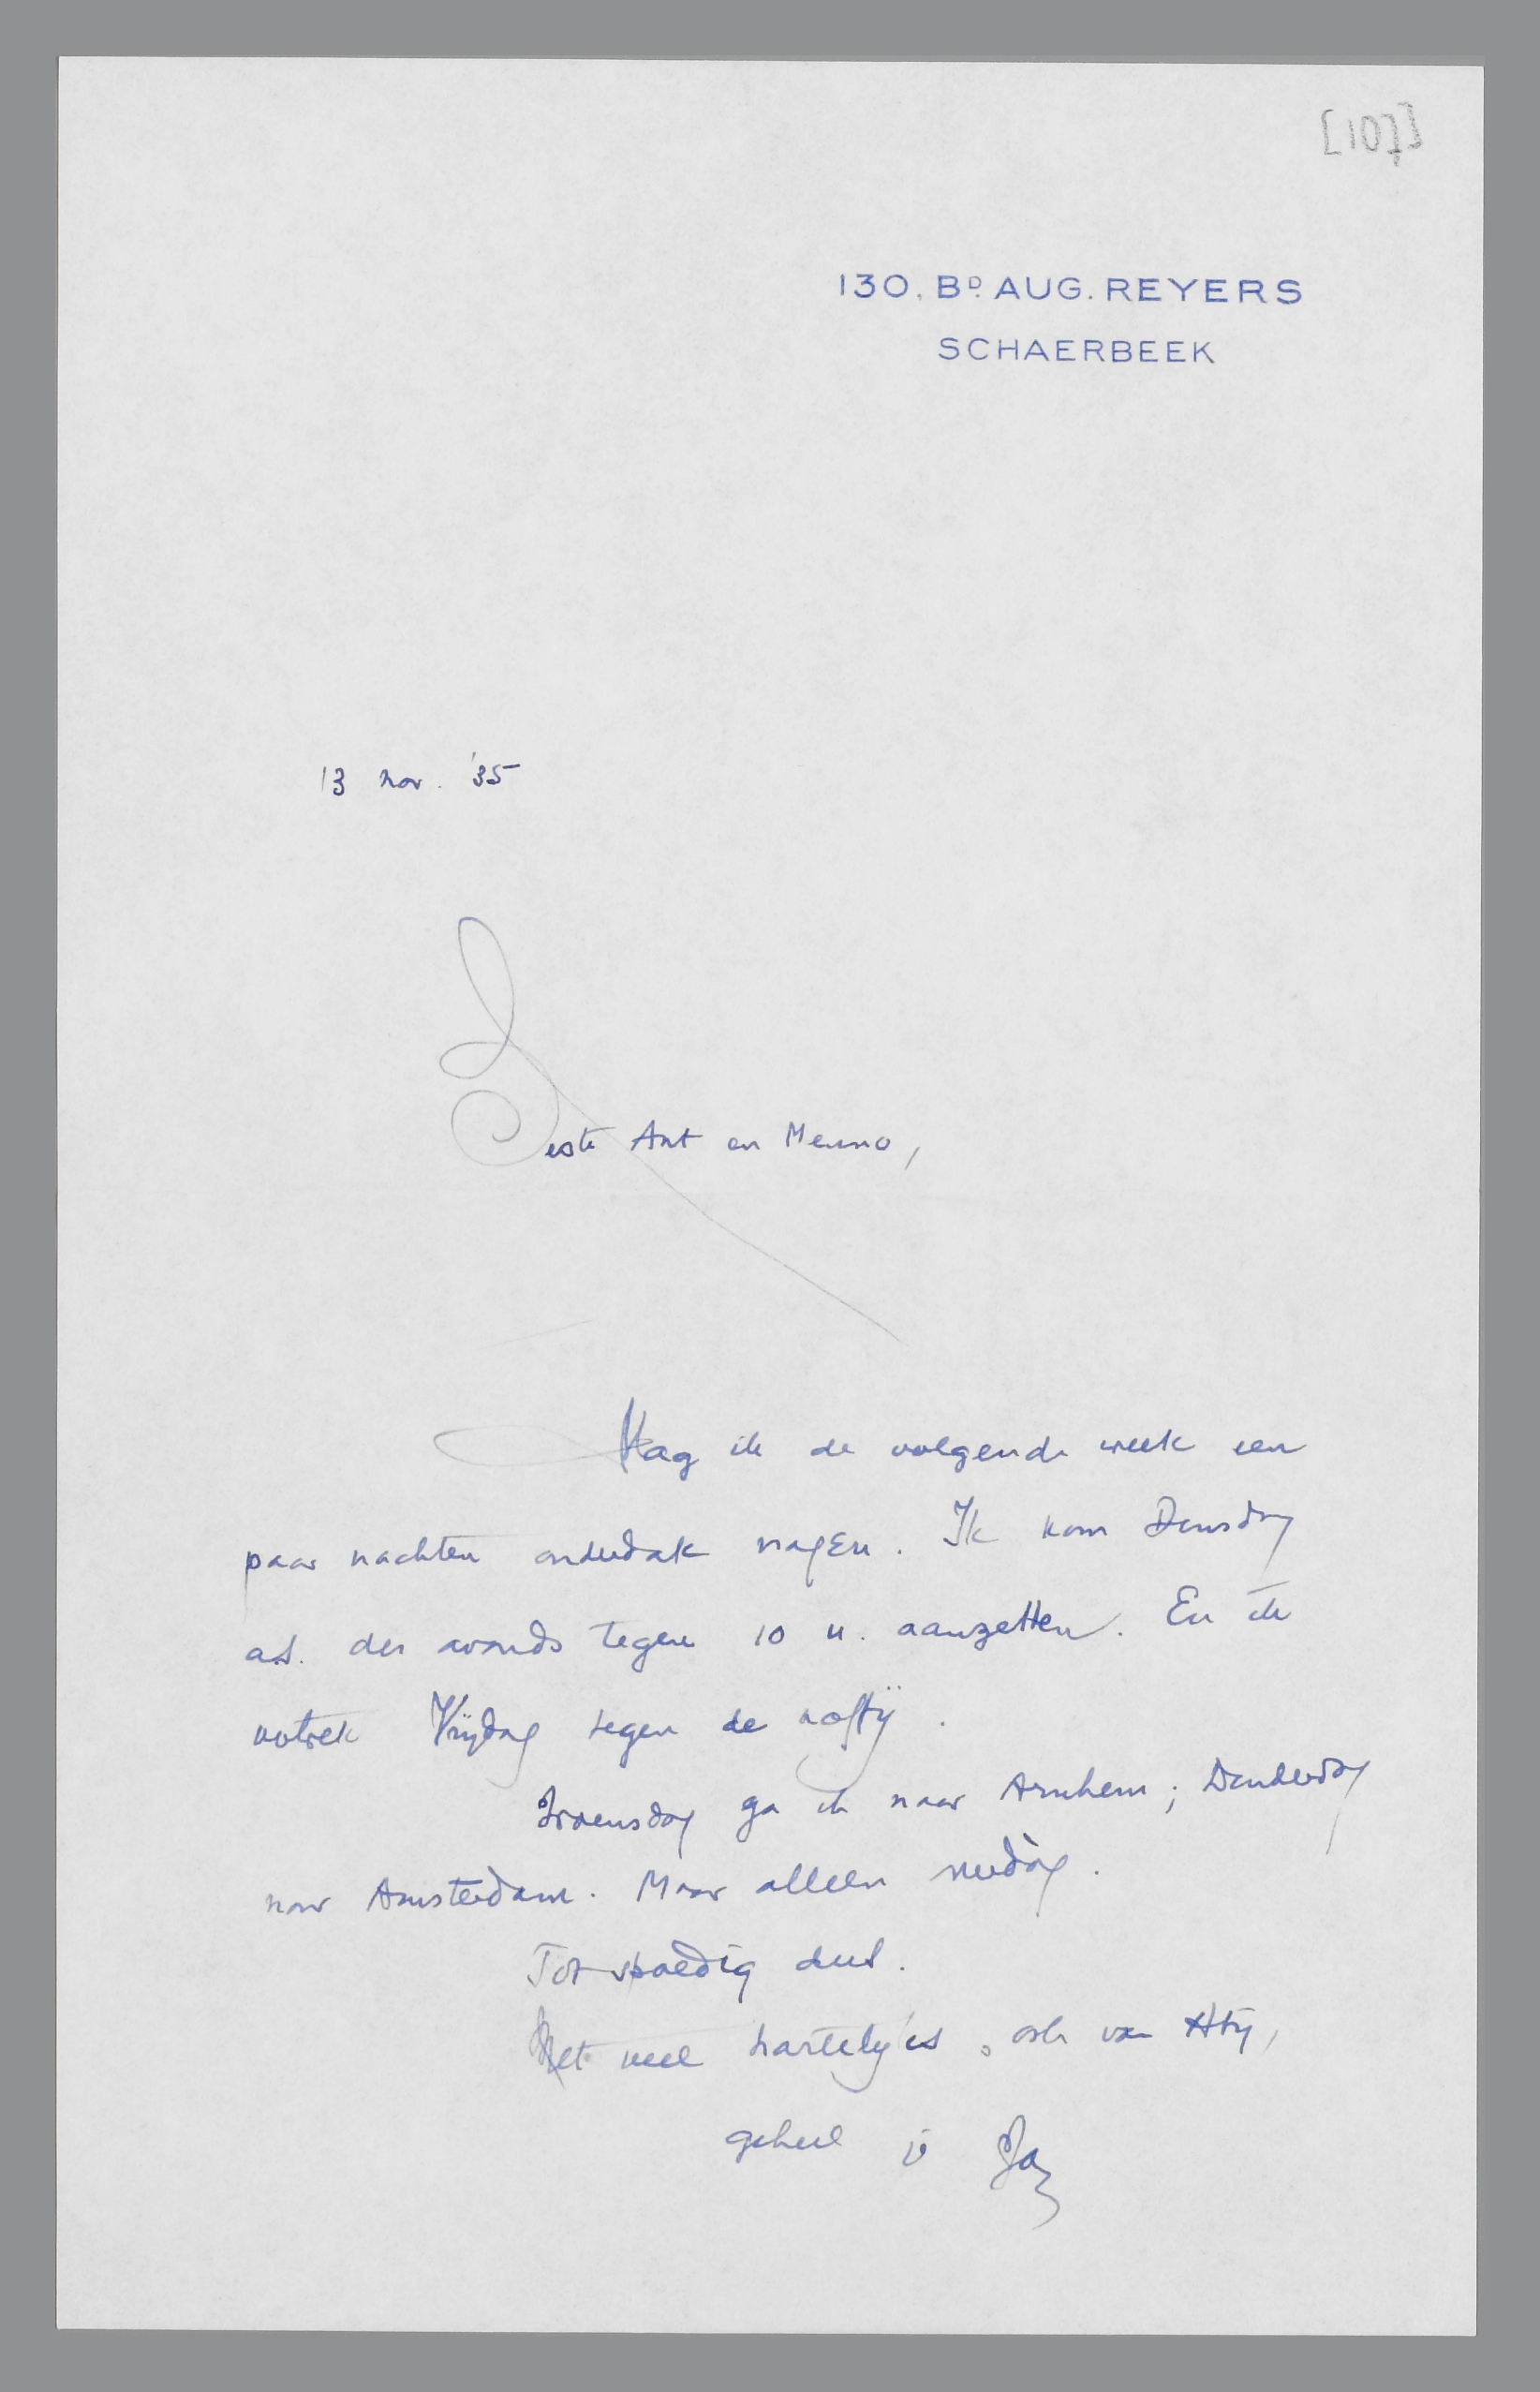 [107]
130, BD. AUG. REYERS
SCHAERBEEK
13 nov. '35
Beste Ant en Menno,
Mag ik de volgende week een
paar nachten onderdak vragen. Ik kom Dinsdag
a.s. des avonds tegen 10 u. aanzetten. En ik
vertrek Vrijdag tegen de koffij.
Woensdag ga ik naar Arnhem; Donderdag
naar Amsterdam. Maar alleen
Tot spoedig dus.
Met veel hartelijks, ook van Atty,
geheel je Jan